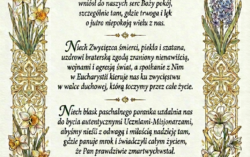 wniósł do naszych serc Boży pokój,
szczególnie tam, gdzie trwoga i lęk
o jutro niepokoją wielu z nas.
Niech Zwycięzca śmierci, piekła i szatana,
uzdrowi braterską zgodą zranioną nienawiścią,
wojnami i agresją świat, a spotkanie z Nim
w Eucharystii kieruje nas ku zwycięstwu
w walce duchowej, którą toczymy przez całe życie.
Niech blask paschalnego poranka uzdalnia nas do
bycia autentycznymi Uczniami-Misjonarzami,
abyśmy nieśli z odwagą i miłością nadzieję tam,
gdzie panuje mrok i świadczyli całym życiem,
że Pan prawdziwie zmartwychwstał.